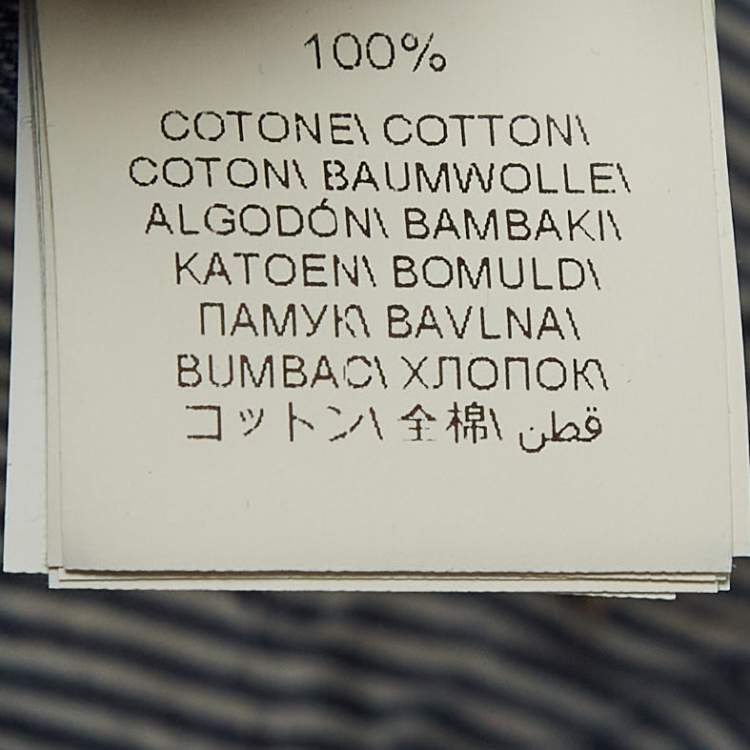 100%
COTONE\ COTTON\
COTON\ BAUMWOLLE\
ALGODÓN\ BAMBAKI\
KATOEN\ BOMULD\
ПАМУК\ BAVLNA\
BUMBAC\ ХЛОПОК\
コットン\ 全棉\ قطن